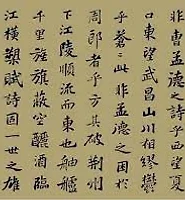 非孟德之詩乎西望夏
口東望武昌山川相繆鬱
乎蒼〻此非孟德之困於
周郎者乎方其破荊州
下江陵順流而東也舳艫
千里旌旗蔽空釃酒臨
江橫槊賦詩固一世之雄